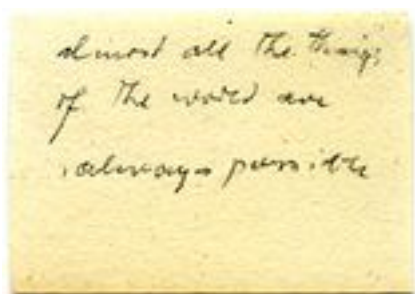 almost all the things
of the world are
always possible